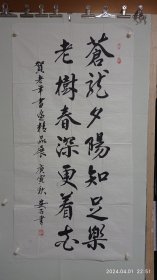 蒼龍夕陽知足樂
老樹春深更著花
賀老年書画精品展 庚寅秋
2024.04.01 22:51